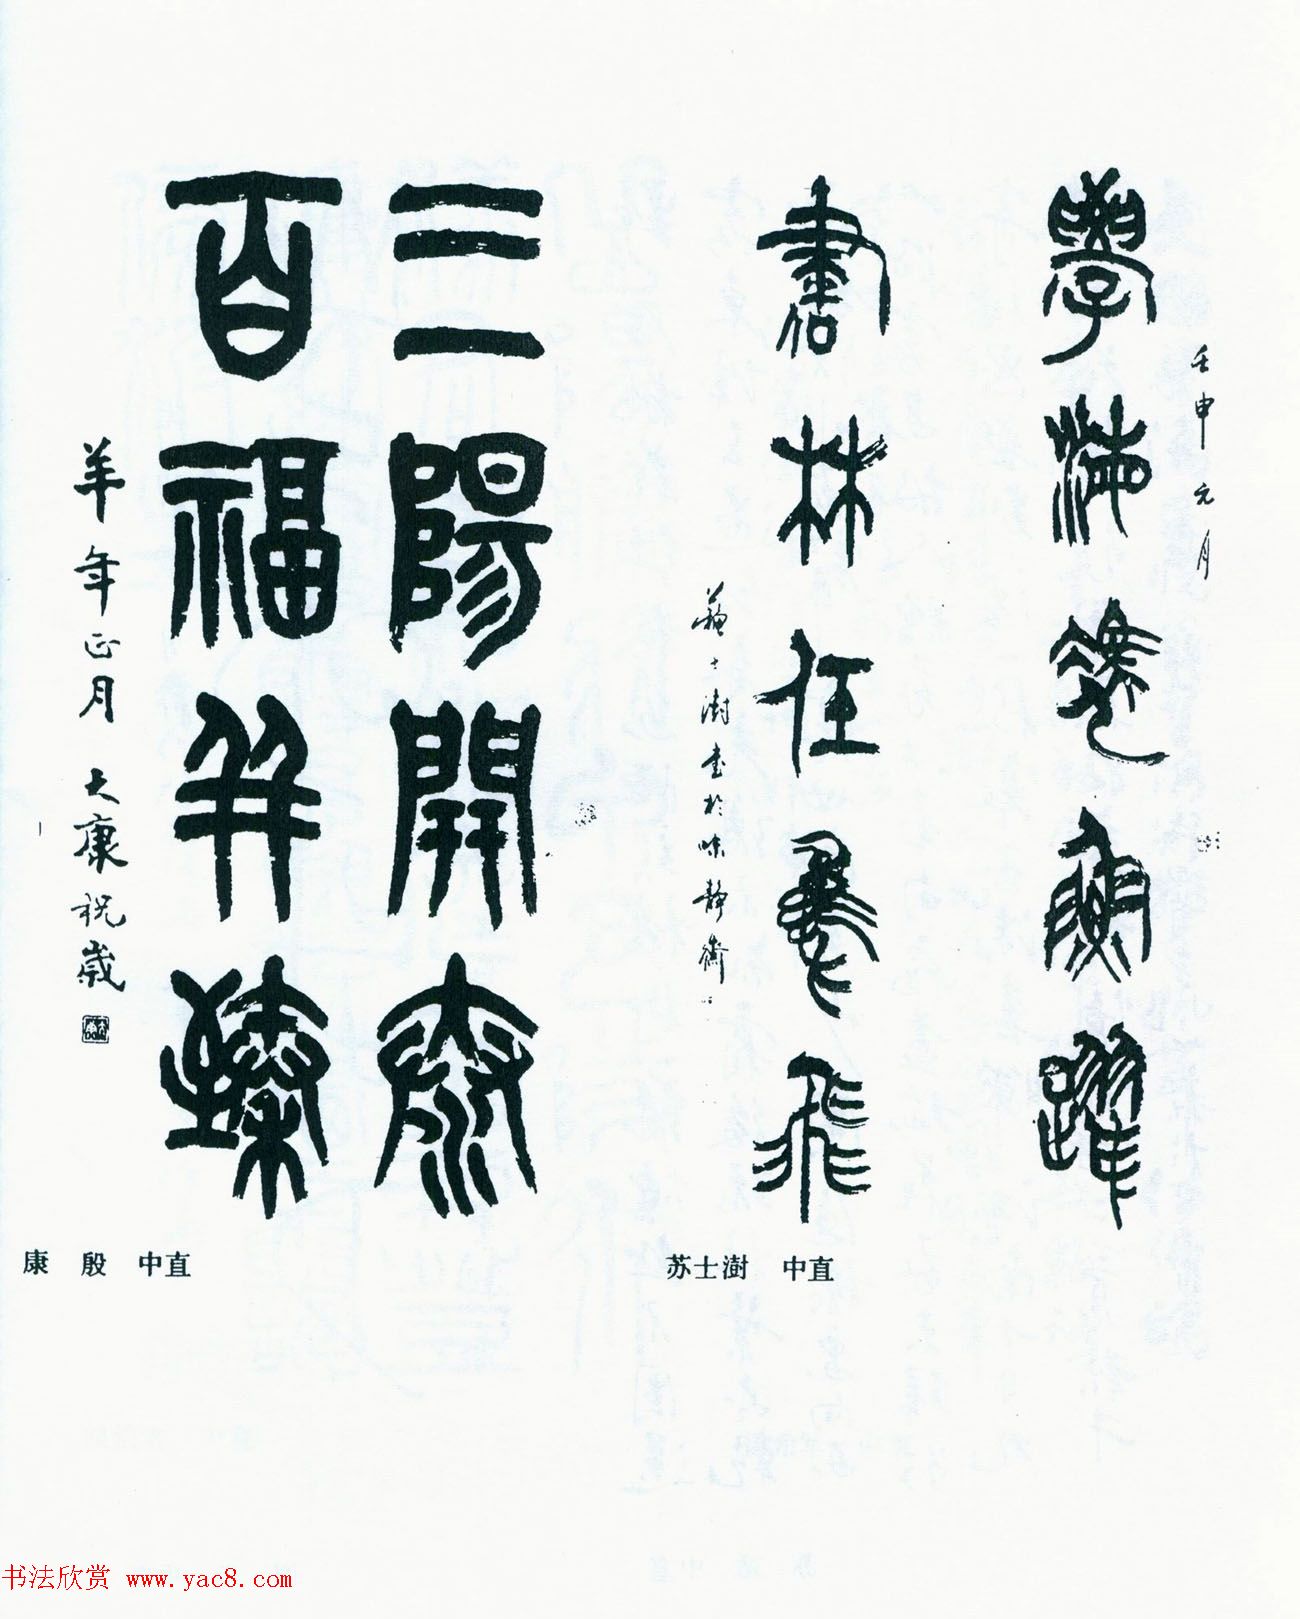 壬申元月
學海魚躍
書林任鳥飛
蘇士澍書於味靜齋
三陽開泰
百福并臻
羊年正月 大康祝歲
苏士澍 中直
康 殷 中直
书法欣赏 www.yac8.com